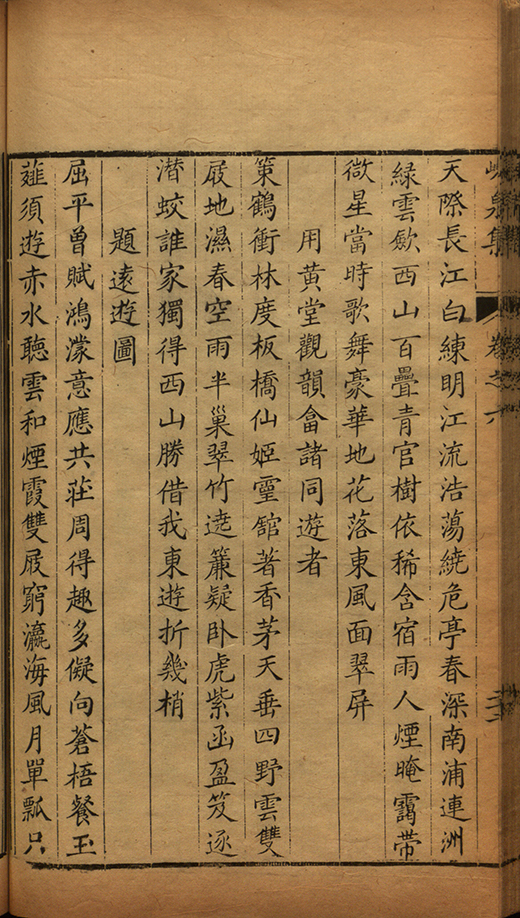 天際長江白練明江流浩蕩繞危亭春深南浦連洲
綠雲歛西山百疊青官樹依稀含宿雨人煙晻靄帶
微星當時歌舞豪華地花落東風面翠屏
用黄堂觀韻畣諸同遊者
策鶴衝林度板橋仙姬靈舘著香茅天垂四野雲雙
屐地濕春空雨半巢翠竹遶簾疑卧虎紫函盈笈逐
潜蛟誰家獨得西山勝借我東遊折幾梢
題遠遊圖
屈平曾賦鴻濛意應共莊周得趣多儗向蒼梧餐玉
薤須遊赤水聽雲和煙霞雙屐窮瀛海風月單瓢只
泉集
卷之六